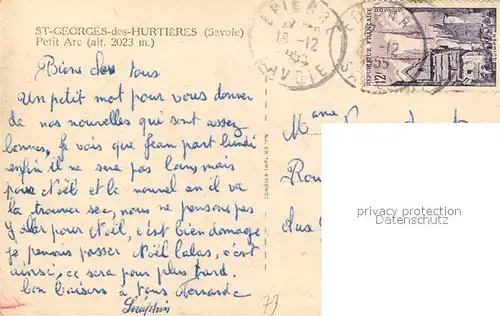 ST-GEORGES-des-HURTIÈRES (Savoie)
Petit Arc (alt. 2023 m.)
EPIERRE
19 -12
SAVOIE
-12
55
REPUBLIQUE FRANÇAISE
12F
QUIMPER
Biens chers tous
Un petit mot pour vous donner
de nos nouvelles qui sont assez
bonnes, Je vois que Jean part lundi
enfin il ne sera pas là mais
pour Noël et le nouvel an il va
la trouver sec, nous ne pensons pas
y aller pour Noël, c'est bien domage
je pensais passer Noël c'est
ainsi, ce sera pour plus tard.
bon baisers à tous Fernande
Séraphin
COMBIER IMP. MACON
Mame
Rou
Aux
privacy protection
www.delcampe.net
79